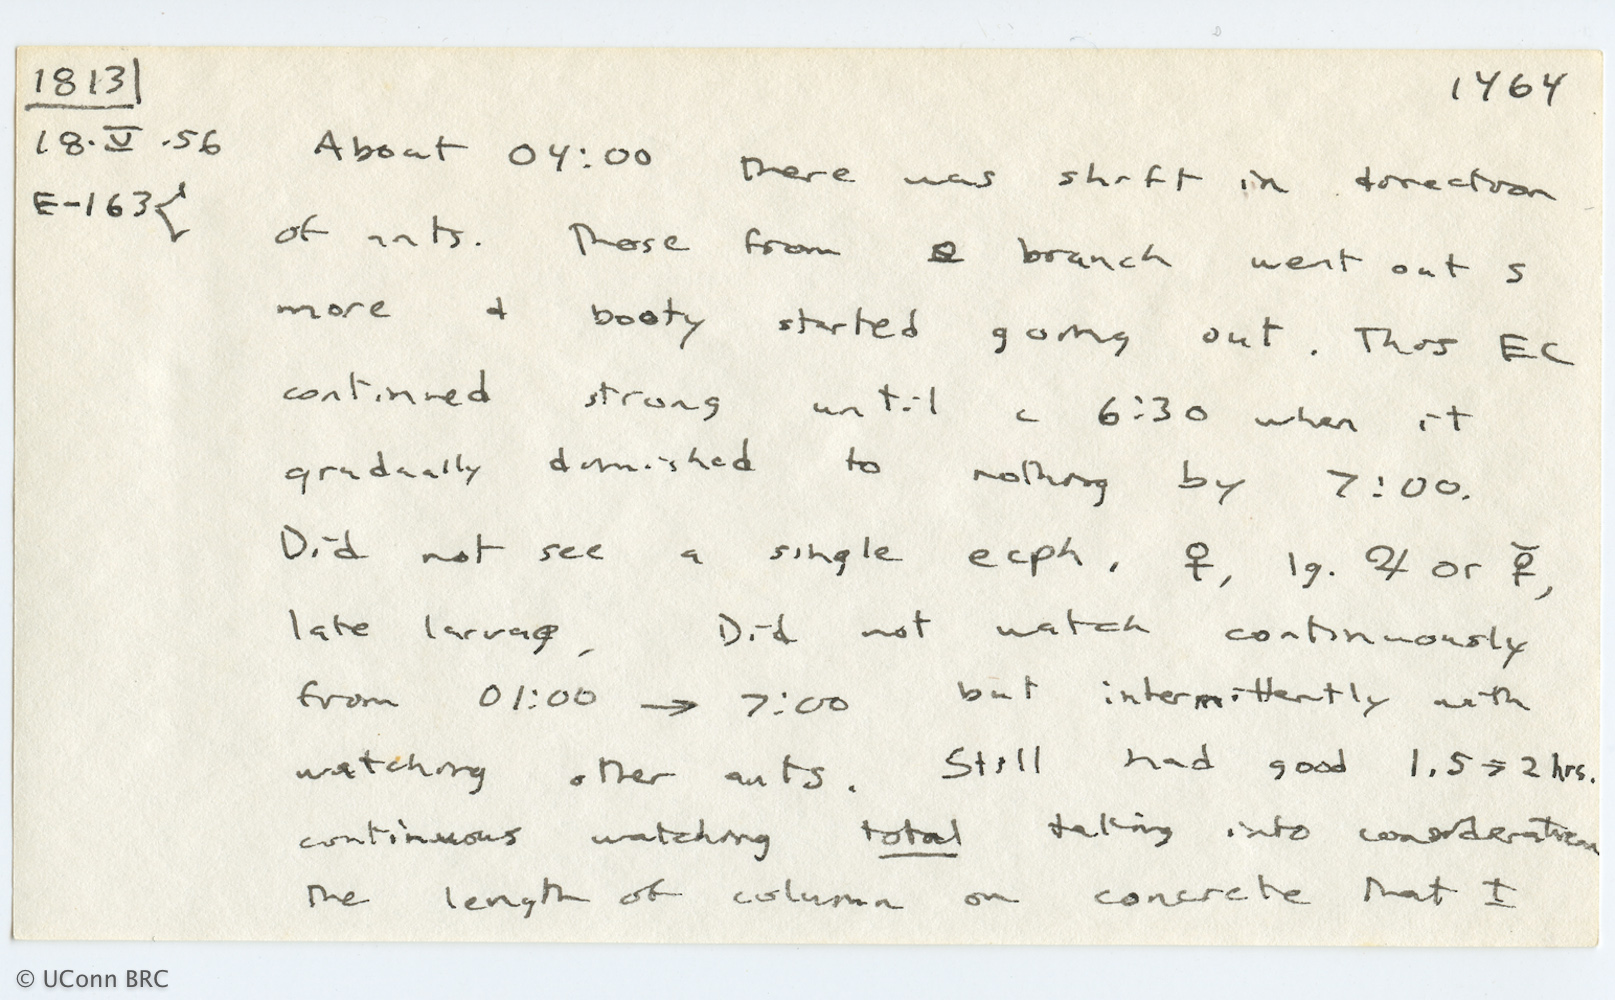 1813 1464
18.V.56 About 04:00 there was shift in direction
E-163{ of ants. Those from branch went out s
more & booty started going out. This EC
continued strong until c 6:30 when it
gradually diminished to nothing by 7:00.
Did not see a single ecph. ♀, lg. ♃ or
late larvae, Did not watch continuously
from 01:00 → 7:00 but intermittently with
watching other ants. Still had good 1.5 → 2 hrs.
continuous watching total taking into consideration
the length of column on concrete that I
© UConn BRC